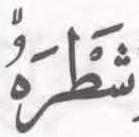 شَطْرَهُ